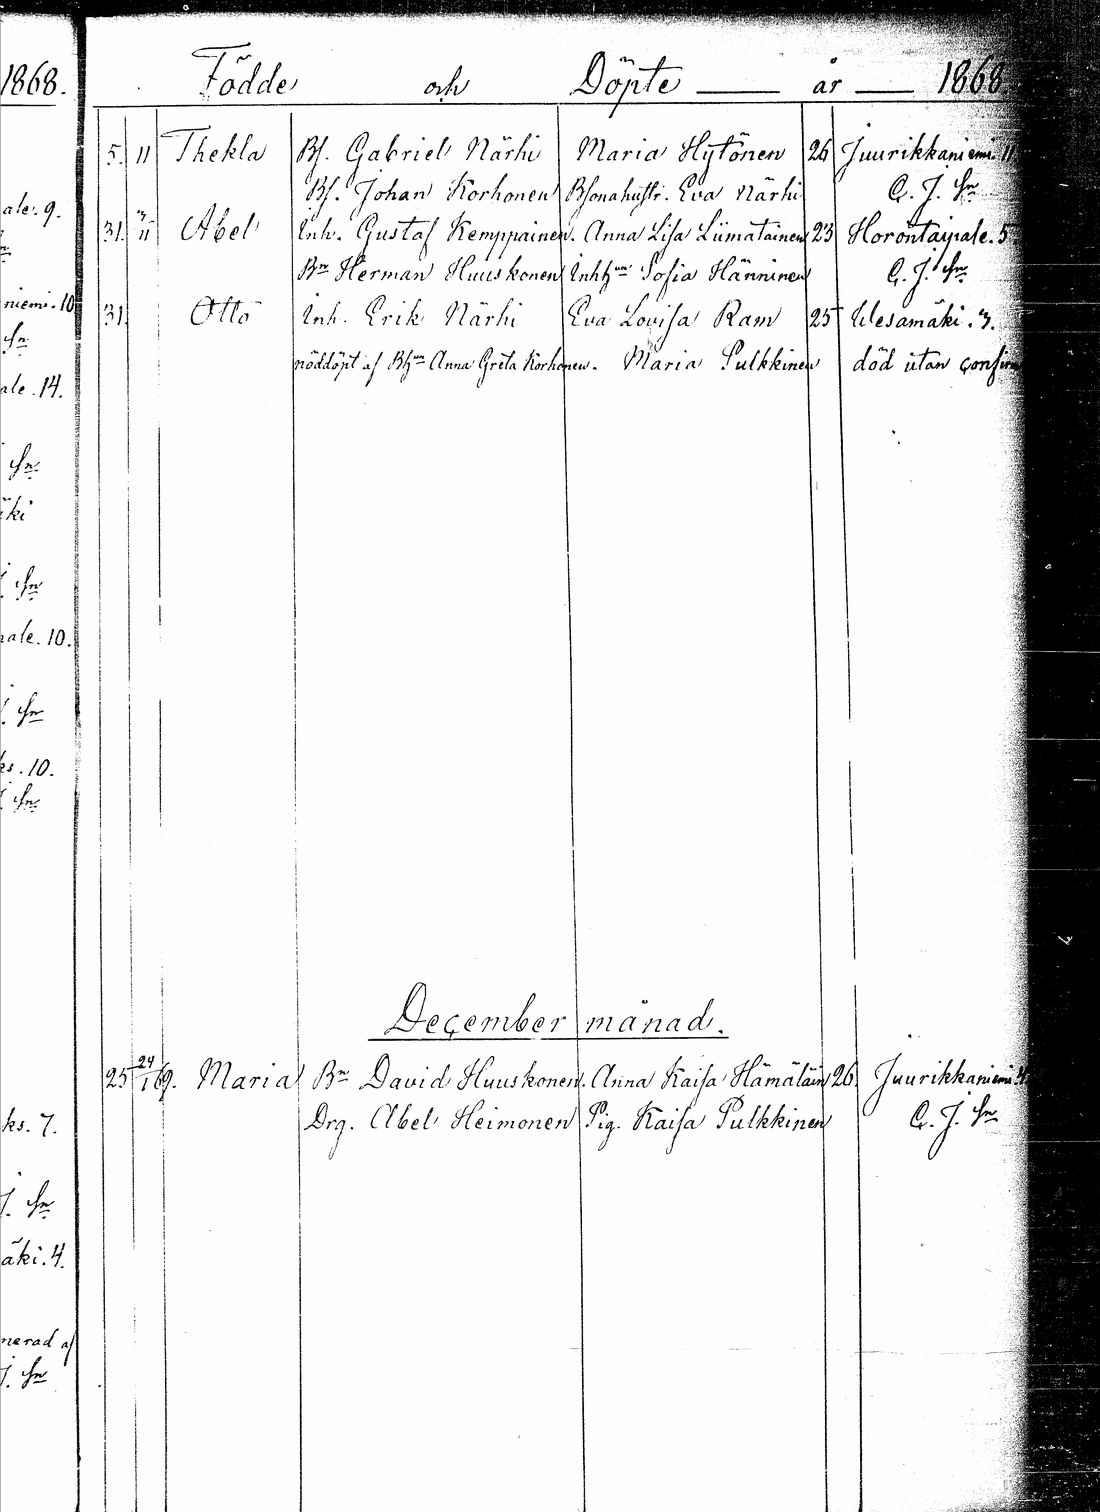 1868.
Födde och Döpte år 1868
5. 11 Thekla Bs. Gabriel Närhi Maria Hytönen 26 Juurikkaniemi. 11
Bs. Johan Korhonen Bsonahustr. Eva Närhi C. J. Sn
31. 3/11 Abel Inh. Gustaf Kemppainen. Anna Lisa Liimatainen 23 Horontaipale. 5
Bn Herman Huuskonen Sofia Hänninen C. J. Sn
31. Otto Inh. Erik Närhi Eva Lovisa Ram 25 Wesamäki. 3.
nöddöpt af Anna Greta Korhonen. Maria Pulkkinen död utan confirm
December månad.
25 24/1 69. Maria Bn David Huuskonen. Anna Kaisa Hämäläin 26 Juurikkaniemi
Drg. Abel Heimonen Pig. Kaisa Pulkkinen C. J. Sn
ale. 9.
niemi. 10
Sn
ale. 14.
Sn
äki
Sn
ale. 10.
Sn
ks. 10.
Sn
ks. 7.
J. Sn
äki. 4.
nerad af
J. Sn